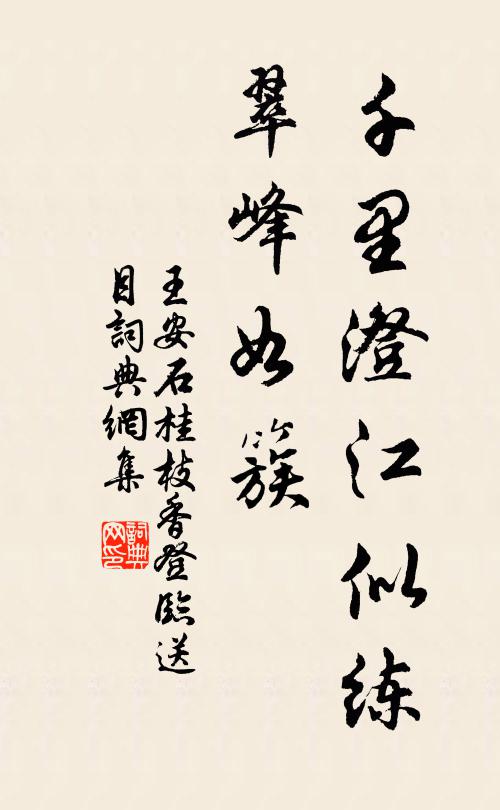 千里澄江似练
翠峰如簇
王安石桂枝香登臨送
目詞典網集
詞典
网印